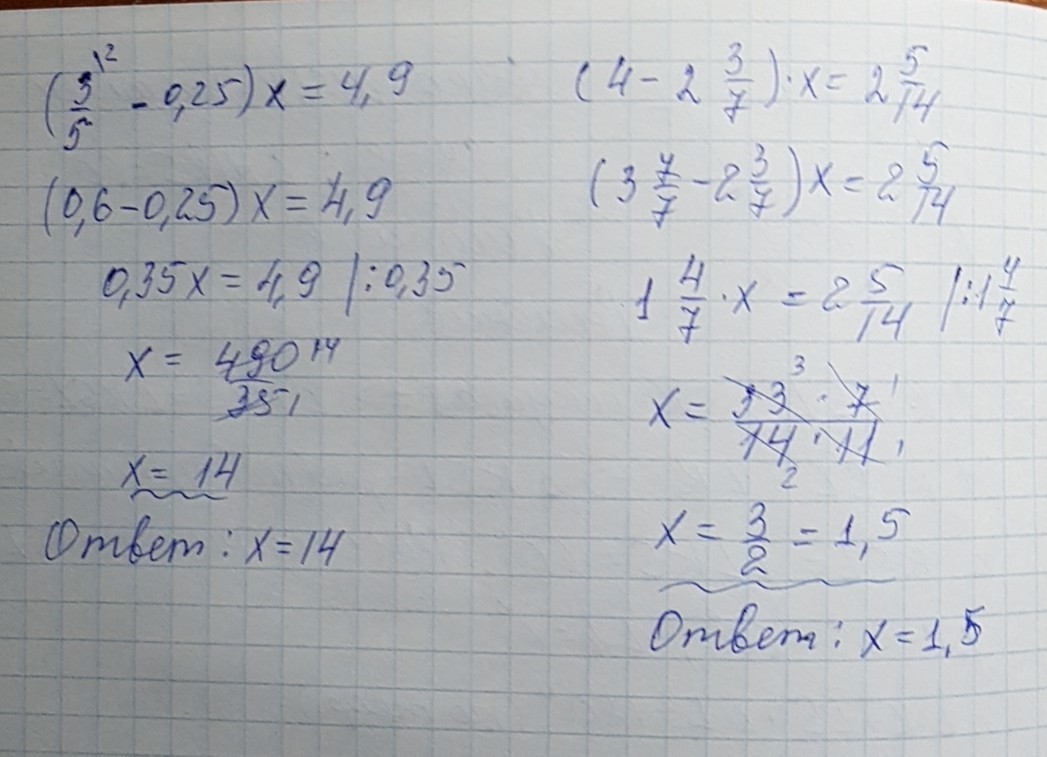 (3/5 \2 - 0,25) x = 4,9
(0,6 - 0,25) x = 4,9
0,35x = 4,9 |: 0,35
x = 490 14 / 35 1
x = 14
Ответ: x = 14
(4 - 2 3/7) · x = 2 5/14
(3 7/7 - 2 3/7) x = 2 5/14
1 4/7 · x = 2 5/14 |: 1 4/7
x = 33 3 · 7 1 / 14 2 · 11 1
x = 3/2 = 1,5
Ответ: x = 1,5